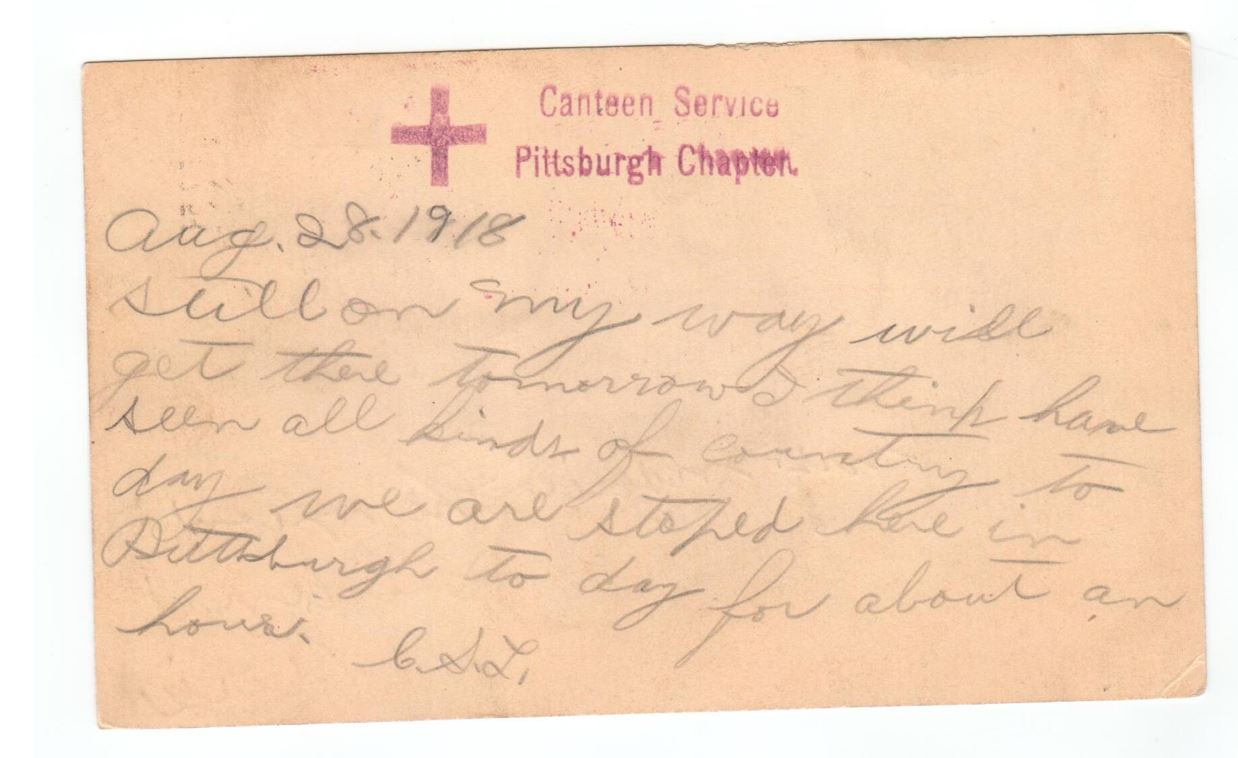 Canteen Service
Pittsburgh Chapter.
Aug. 28. 1918
Still on my way will
get there tomorrow I think have
seen all kinds of country to
day we are stoped here in
Pittsburgh to day for about an
hour.
C.S.L.